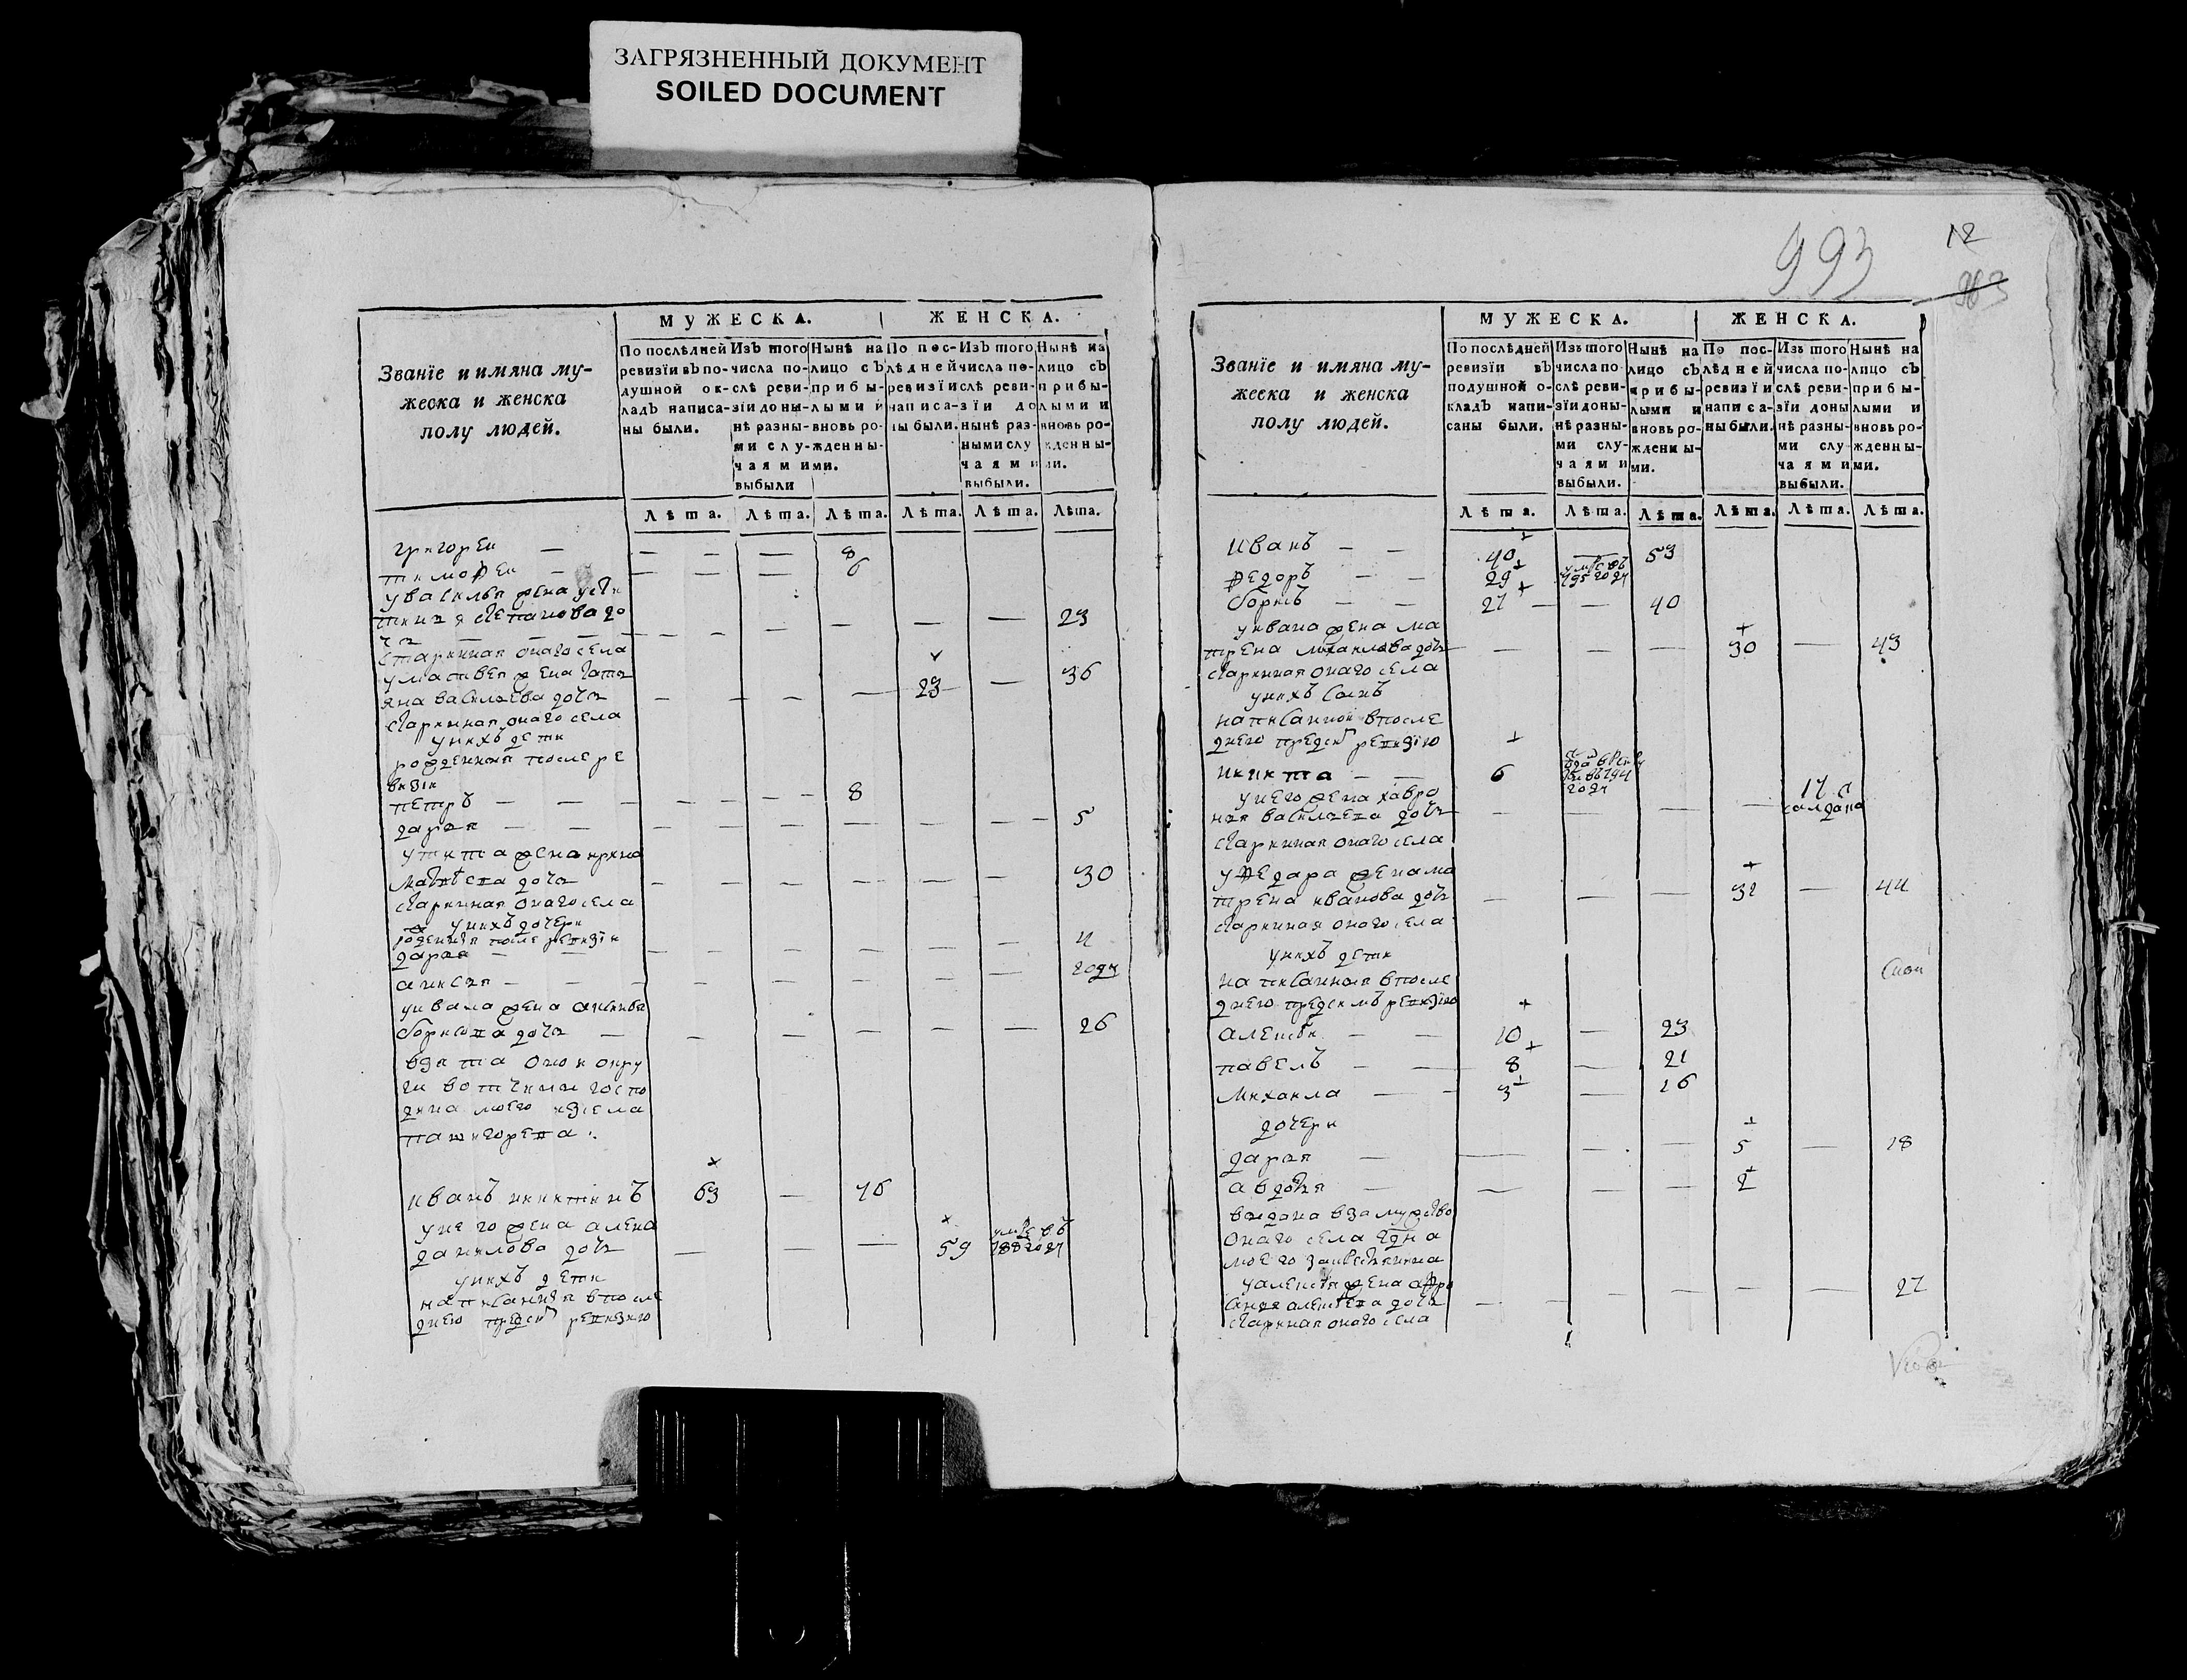 ЗАГРЯЗНЕННЫЙ ДОКУМЕНТ
SOILED DOCUMENT
МУЖЕСКА. ЖЕНСКА.
Званїе и имяна му-
жеска и женска
полу людей.
По послѣдней ревизїи въ по-душной ок-ладъ написа-ны были.
Изъ того числа по-слѣ реви-зїи доны-нѣ разны-ми слу-чаями выбыли
Нынѣ на лицо съ прибы-лыми и вновь ро-жденны-ми.
По пос-лѣдней ревизїи написа-ны были.
Изъ того числа по-слѣ реви-зїи до нынѣ раз-ными слу чаями выбыли.
Нынѣ на лицо съ прибы-лыми и вновь ро-жденны-ми.
Лѣта. Лѣта. Лѣта. Лѣта. Лѣта. Лѣта.
григореи — — — — 8
тимофеи — — — — 6
уваси́лья жена усти
ниия степанова до
чъ — — — — — 23
старинная онаго села
уматвея жена татя
яна васильева дочъ — — — — 23 — 36
старинная онаго села
унихъ дети
рожденныя послѣ ре
визїи
петръ — — — — — 8
дарья — — — — — 5
утита жена ирина
матвѣева дочъ — — — — — 30
старинная онаго села
унихъ дочери
рожденныя после ревизїи
дарья — — — — — 4
анисья — — — — — году
уивана жена
борисова дочъ — — — — — 26
взята оной окру
ги вотчины госпо
дина моего изсела
иванъ никитинъ 63 — 76
унего жена алена
данилова дочъ — — — 59 умре въ 788 году
унихъ дети
написанныя впосле
днею пред симъ ревизию
993 12
963
МУЖЕСКА. ЖЕНСКА.
Званїе и имяна му-
жеска и женска
полу людей.
По послѣдней ревизїи въ подушной о-кладъ напи-саны были.
Изъ того числа по слѣ реви-зїи доны-нѣ разны-ми слу-чаями выбыли.
Нынѣ на лицо съ прибы-лыми и вновь ро-жденны-ми.
По пос-лѣдней ревизїи написа-ны были.
Изъ того числа по-слѣ реви-зїи доны нѣ разны-ми слу-чаями выбыли.
Нынѣ на лицо съ прибы-лыми и вновь ро-жденны-ми.
Лѣта. Лѣта. Лѣта. Лѣта. Лѣта. Лѣта.
Иванъ — — 40 — 53
Федоръ — — 29 умре въ 795 году
борисъ — — 27 — 40
уивана жена ма
трена михаилова дочъ — — — 30 — 43
старинная онаго села
унихъ сынъ
написанной впосле
днею пред симъ ревизїю
никита — — 6
унего жена хавро
нья васильева дочъ — — — —
старинная онаго села
уфедора жена ма
трена иванова дочъ — — — 31 — 44
старинная онаго села
унихъ дети
написанныя впосле
днею пред симъ ревизїю
алексѣи — — 10 — 23
павелъ — — 8 — 21
михаила — — 3 — 16
дочери
дарья — — — — 5 — 18
авдотья — — — — 2
выдана взамужство
онаго села
уалексѣя жена афро
синья алексѣева дочъ — — — — — 27
старинная онаго села